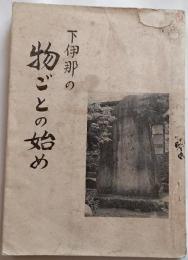 下伊那の
物ごとの始め